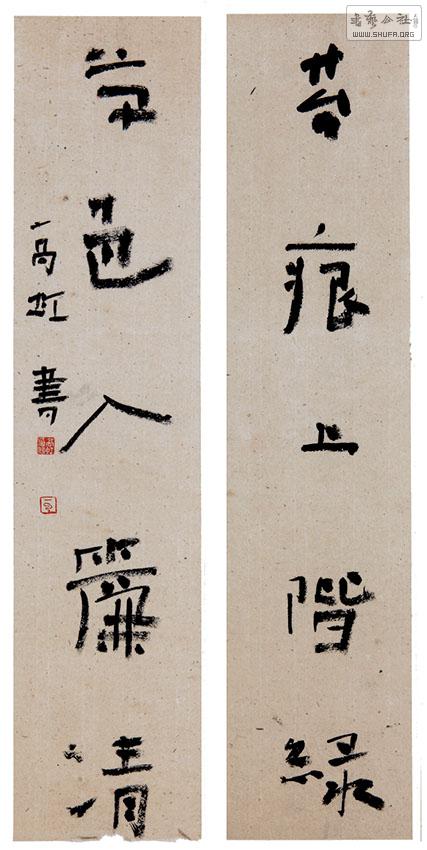 書藝公社
WWW.SHUFA.ORG
苔痕上階緑
草色入簾清
高虹書